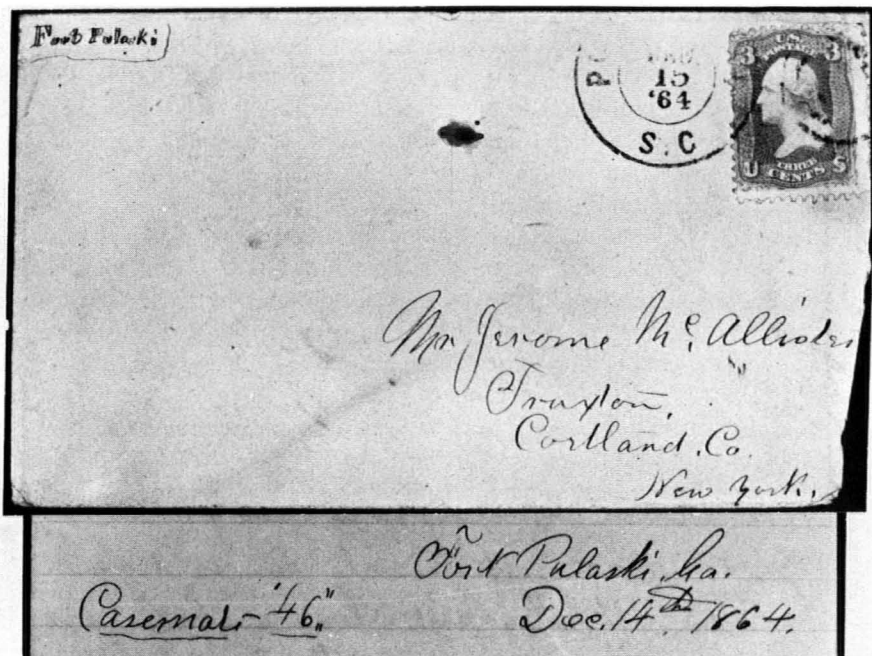 Fort Pulaski
15
'64
S.C
U.S.
POSTAGE
3 3
THREE
CENTS
U S
Mr Jerome Mc. Allister
Truxton,
Cortland, Co.
New York.
Fort Pulaski, Ga.
Casemate "46" Dec. 14th 1864.